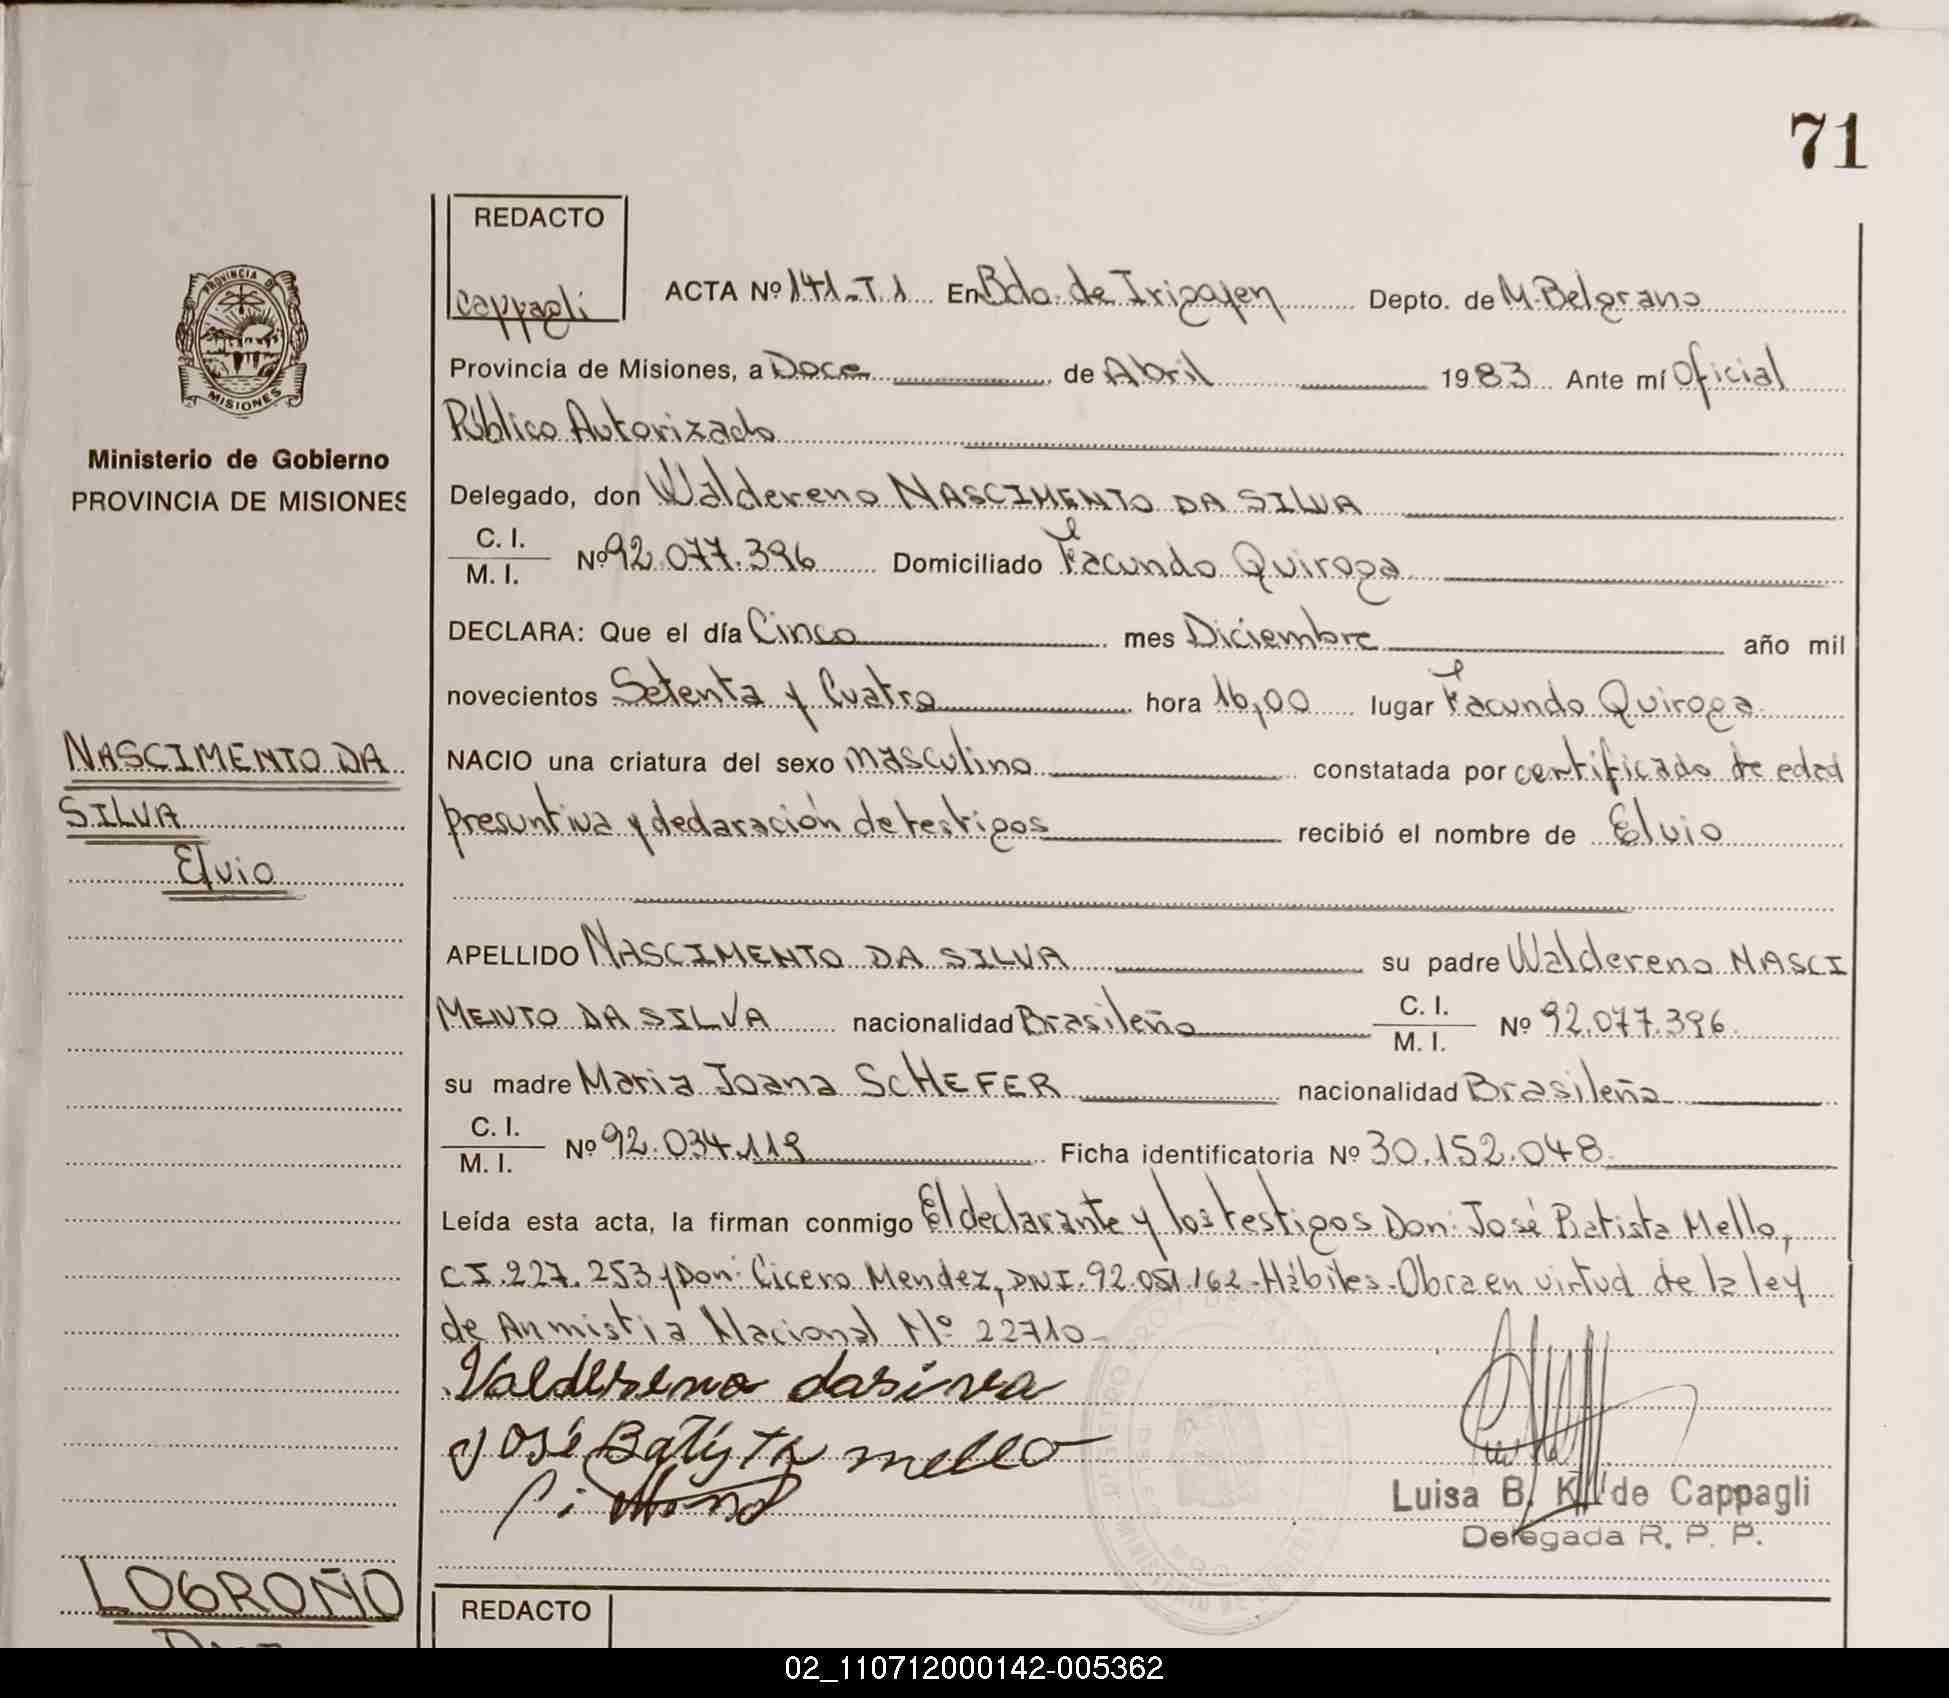 71
REDACTO
Cappagli
ACTA Nº 141-T.1 En Bdo. de Irigoyen Depto. de M. Belgrano
Provincia de Misiones, a Doce de Abril 1983 Ante mí Oficial
Público Autorizado
Delegado, don Waldereno NASCIMENTO DA SILVA
C. I.
M. I. Nº 92.077.396 Domiciliado Facundo Quiroga
DECLARA: Que el día Cinco mes Diciembre año mil
novecientos Setenta y Cuatro hora 16,00 lugar Facundo Quiroga
NACIO una criatura del sexo masculino constatada por certificado de edad
presuntiva y declaración de testigos recibió el nombre de Elvio
APELLIDO NASCIMENTO DA SILVA su padre Waldereno NASCI
MENTO DA SILVA nacionalidad Brasileña C. I.
M. I. Nº 92.077.396
su madre Maria Joana SCHEFER nacionalidad Brasileña
C. I.
M. I. Nº 92.034.119 Ficha identificatoria Nº 30.152.048
Leída esta acta, la firman conmigo El declarante y los testigos Don: José Batista Mello,
C.I. 227.253 y Don: Cicero Mendez, DNI. 92.051.162-Hábiles-Obra en virtud de la ley
de Anmistia Nacional Nº 22710-
Valdereno dasirva
José Batista mello
Luisa B. K. de Cappagli
Delegada R. P. P.
PROVINCIA DE
MISIONES
Ministerio de Gobierno
PROVINCIA DE MISIONES
NASCIMENTO DA
SILVA
Elvio
LOGROÑO
REDACTO
02_110712000142-005362